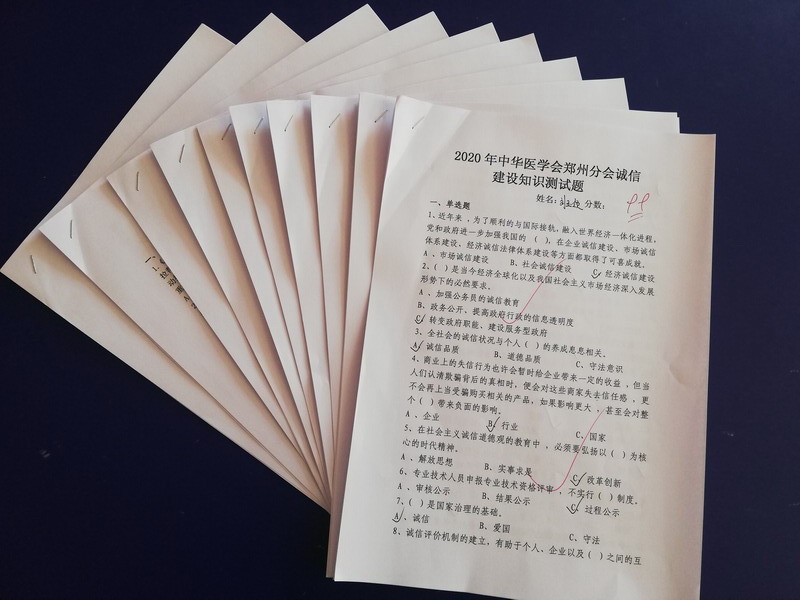 2020 年中华医学会郑州分会诚信
建设知识测试题
姓名: 分数: 99
一、单选题
1、近年来，为了顺利的与国际接轨，融入世界经济一体化进程，
党和政府进一步加强我国的（ ），在企业诚信建设、市场诚信
体系建设、经济诚信法律体系建设等方面都取得了可喜成就。
A 、市场诚信建设 B、社会诚信建设 C、经济诚信建设
2、（ ）是当今经济全球化以及我国社会主义市场经济深入发展
形势下的必然要求。
A 、加强公务员的诚信教育
B、政务公开、提高政府行政的信息透明度
C、转变政府职能、建设服务型政府
3、全社会的诚信状况与个人（ ）的养成息息相关。
A、诚信品质 B、道德品质 C、守法意识
4、商业上的失信行为也许会暂时给企业带来一定的收益，但当
人们认清欺骗背后的真相时，便会对这些商家失去信任感，更
不会再上当受骗购买相关的产品，如果影响更大，甚至会对整
个（ ）带来负面的影响。
A 、企业 B、行业 C、国家
5、在社会主义诚信道德观的教育中，必须要弘扬以（ ）为核
心的时代精神。
A 、解放思想 B、实事求是 C、改革创新
6、专业技术人员申报专业技术资格评审，不实行（ ）制度。
A 、审核公示 B、结果公示 C、过程公示
7、（ ）是国家治理的基础。
A 、诚信 B、爱国 C、守法
8、诚信评价机制的建立，有助于个人、企业以及（ ）之间的互